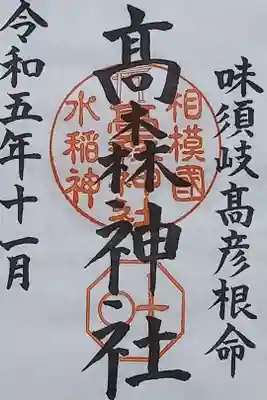 味須岐高彦根命
髙森神社
相模國
水稲神
令和五年十一月